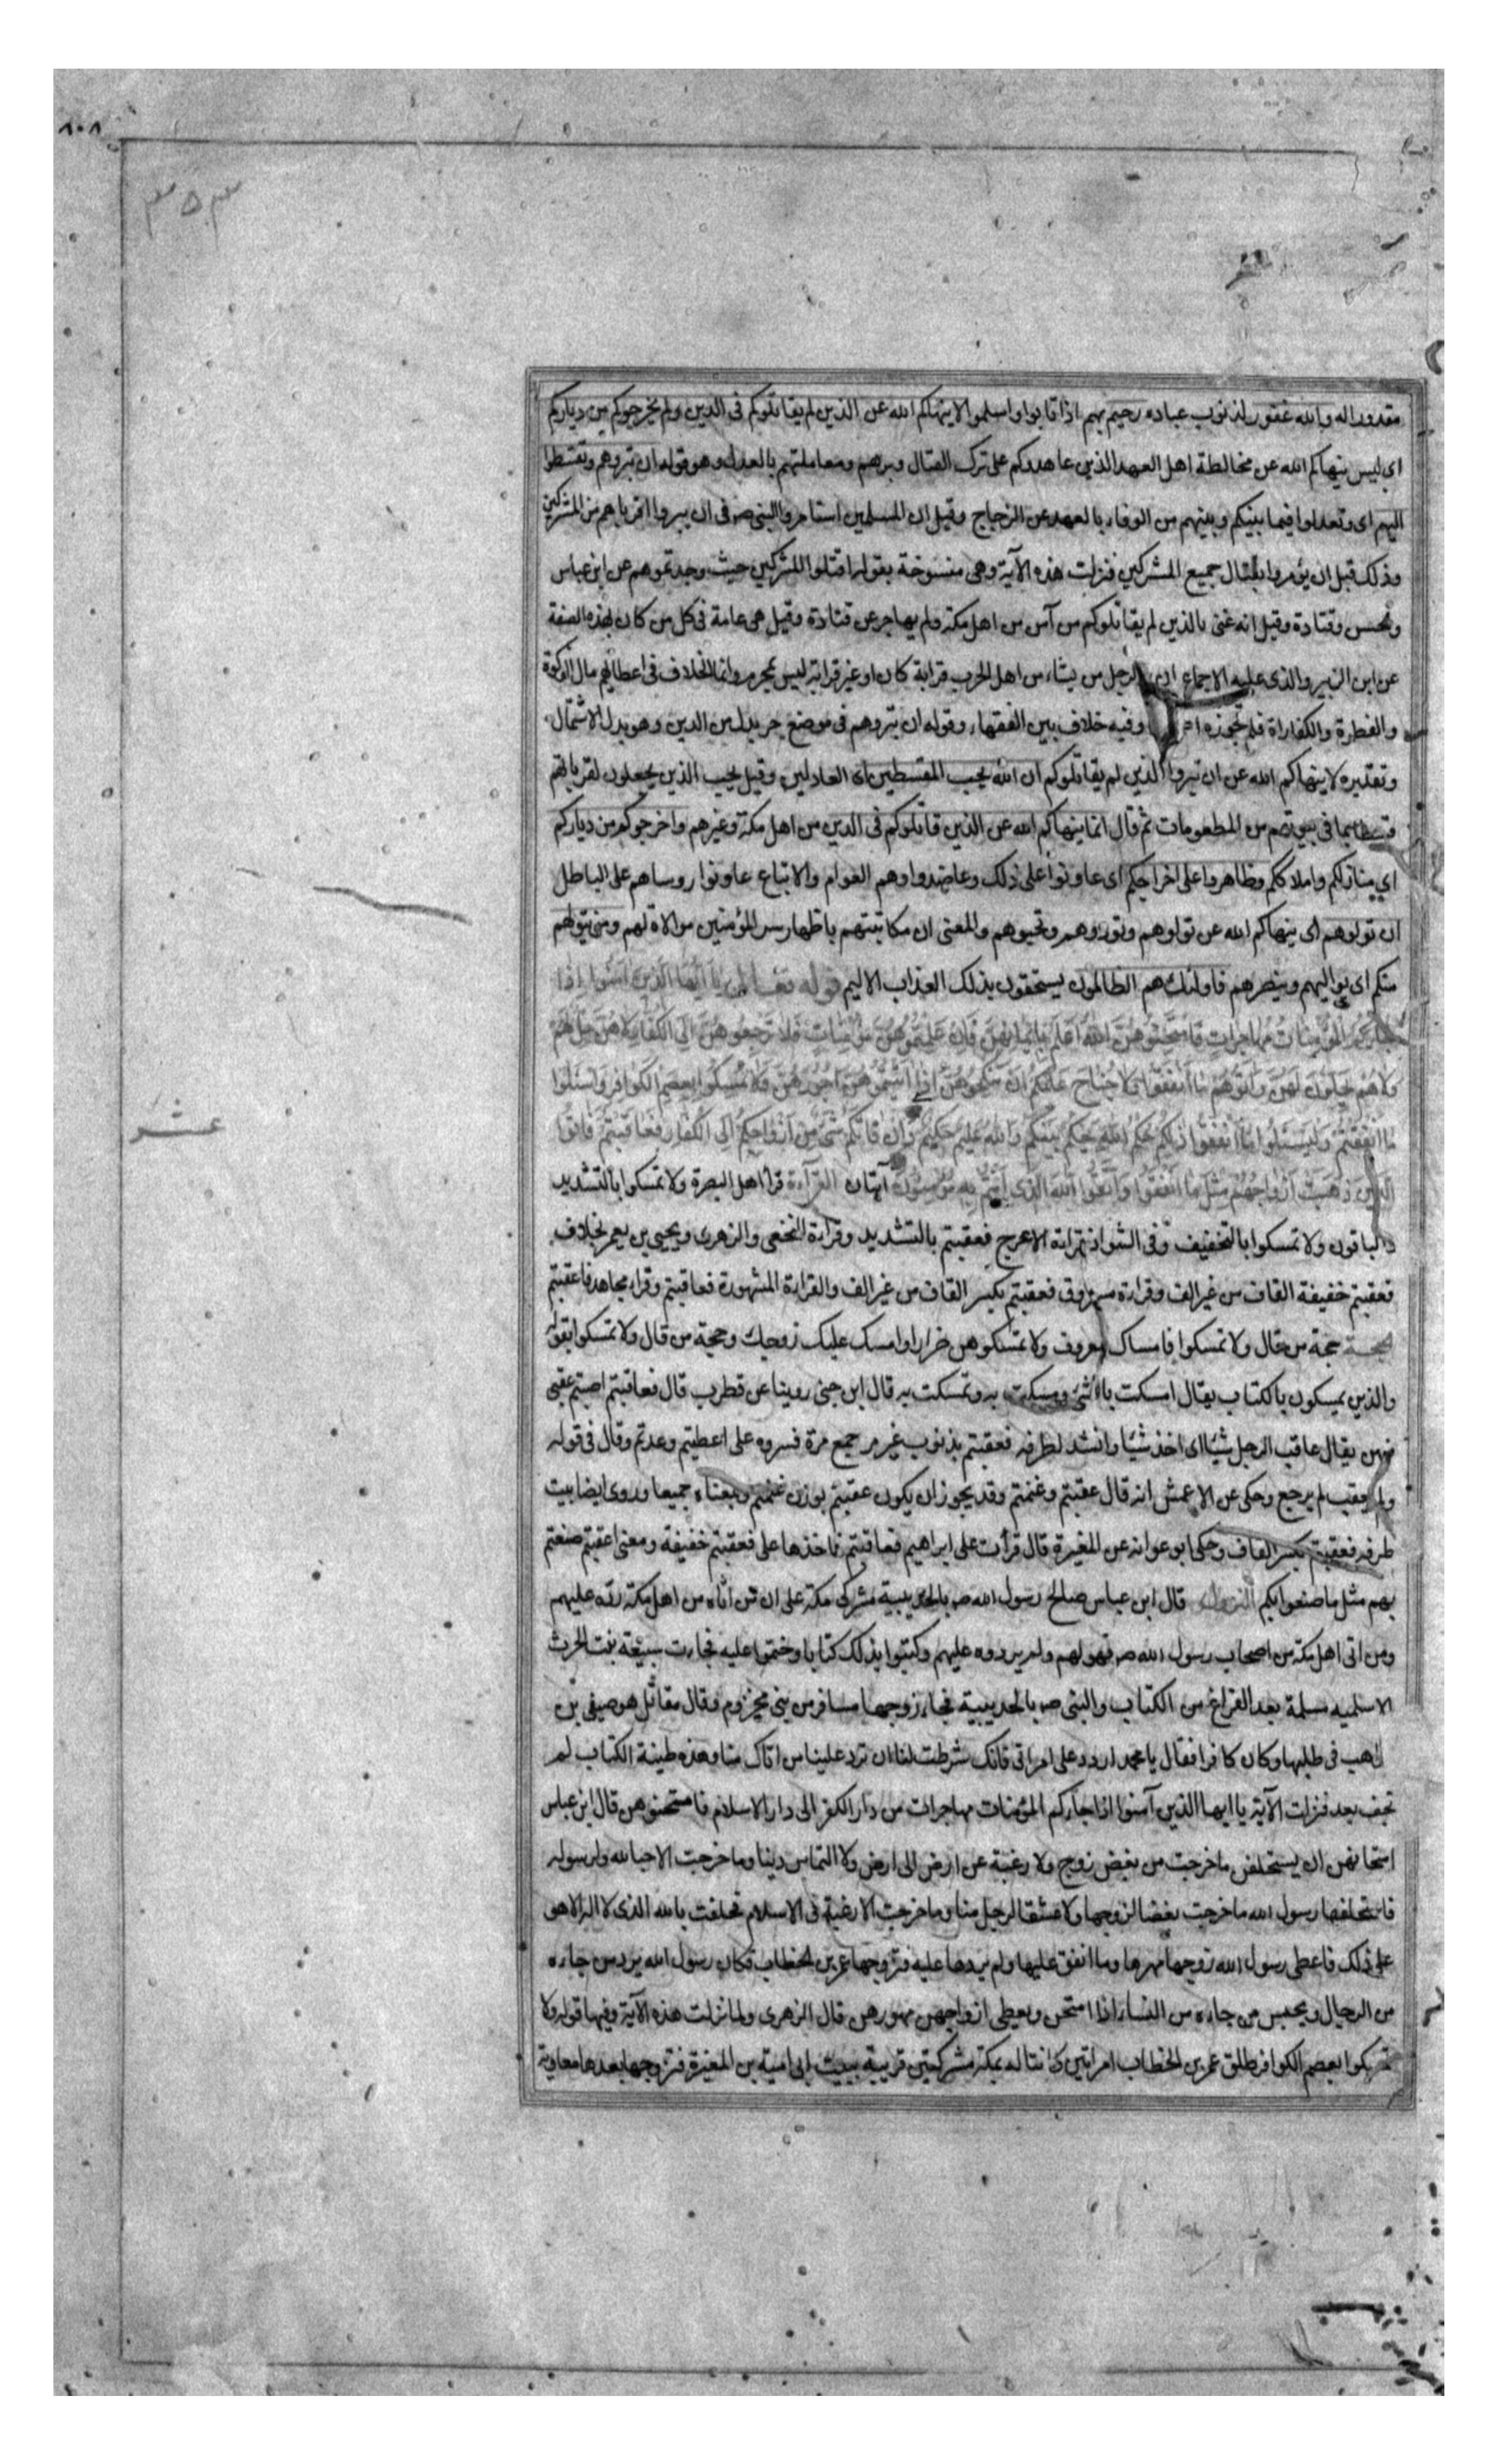 ١٠٨
٣٥٣
مقدور له والله غفور لذنوب عباده رحيم بهم اذا تابوا واسلموا لا ينهاكم الله عن الذين لم يقاتلوكم فى الدين ولم يخرجوكم من دياركم
اى ليس ينهاكم الله عن مخالطة اهل العهد الذين عاهدوكم على ترك القتال وبرهم ومعاملتهم بالعدل وهو قوله ان تبروهم وتقسطوا
اليهم اى وتعدلوا فيما بينكم وبينهم من الوفاء بالعهد عن الزجاج وقيل ان المسلمين استامروا النبى صه فى ان يبروا اقرباهم من المشركين
وذلك قبل ان يؤمروا بقتال جميع المشركين فنزلت هذه الآية وهى منسوخة بقوله اقتلوا المشركين حيث وجدتموهم عن ابن عباس
والحسن وقتادة وقيل انه عنى بالذين لم يقاتلوكم من آمن من اهل مكة ولم يهاجر عن قتادة وقيل هى عامة فى كل من كان بهذه الصفة
عن ابن الزبير والذى عليه الاجماع ان الرجل من يشاء من اهل الحرب قرابة كان او غير قرابة ليس بمحرم وانما الخلاف فى اعطائهم مال الزكوة
والفطرة والكفاراة فلم تجوزه وفيه خلاف بين الفقهاء وقوله ان تبروهم فى موضع جر بدل من الدين وهو بدل الاشتمال
وتقديره لا ينهاكم الله عن ان تبروا الذين لم يقاتلوكم ان الله يحب المقسطين اى العادلين وقيل يحب الذين يجعلون لقراباتهم
قسطا مما فى بيوتهم من المطعومات ثم قال انما ينهاكم الله عن الذين قاتلوكم فى الدين من اهل مكة وغيرهم واخرجوكم من دياركم
اى منازلكم واملاككم وظاهروا على اخراجكم اى عاونوا على ذلك وعاضدوا وهم العوام والاتباع عاونوا روساهم على الباطل
ان تولوهم اى ينهاكم الله عن تولوهم وتودوهم وتحبوهم والمعنى ان مكاتبتهم باظهار سر المؤمنين موالاة لهم ومن يتولهم
منكم اى يواليهم وينصرهم فاولئك هم الظالمون يستحقون بذلك العذاب الاليم قوله تعالى يَا اَيُّهَا الَّذِينَ آمَنُوا اِذَا
جَاءَكُمُ الْمُؤْمِنَاتُ مُهَاجِرَاتٍ فَامْتَحِنُوهُنَّ اَللهُ اَعْلَمُ بِاِيمَانِهِنَّ فَاِنْ عَلِمْتُمُوهُنَّ مُؤْمِنَاتٍ فَلَا تَرْجِعُوهُنَّ اِلَى الْكُفَّارِ لَا هُنَّ حِلٌّ لَهُمْ
وَلَا هُمْ يَحِلُّونَ لَهُنَّ وَآتُوهُمْ مَا اَنْفَقُوا وَلَا جُنَاحَ عَلَيْكُمْ اَنْ تَنْكِحُوهُنَّ اِذَا آتَيْتُمُوهُنَّ اُجُورَهُنَّ وَلَا تُمْسِكُوا بِعِصَمِ الْكَوَافِرِ وَاسْئَلُوا
مَا اَنْفَقْتُمْ وَلْيَسْئَلُوا مَا اَنْفَقُوا ذٰلِكُمْ حُكْمُ اللهِ يَحْكُمُ بَيْنَكُمْ وَاللهُ عَلِيمٌ حَكِيمٌ وَاِنْ فَاتَكُمْ شَىْءٌ مِنْ اَزْوَاجِكُمْ اِلَى الْكُفَّارِ فَعَاقَبْتُمْ فَآتُوا
الَّذِينَ ذَهَبَتْ اَزْوَاجُهُمْ مِثْلَ مَا اَنْفَقُوا وَاتَّقُوا اللهَ الَّذِى اَنْتُمْ بِهِ مُؤْمِنُونَ آيتان القراءة قرا اهل البصرة ولا تمسكوا بالتشديد
والباقون ولا تمسكوا بالتخفيف وفى الشواذ قراءة الاعرج فعقبتم بالتشديد وقراءة النخعى والزهرى ويحيى بن يعمر بخلاف
فعقبتم خفيفة القاف من غير الف وقراءة مسروق فعقبتم بكسر القاف من غير الف والقراءة المشهورة فعاقبتم وقراء مجاهد فاعقبتم
الحجة حجة من قال ولا تمسكوا فامساك بمعروف ولا تمسكوهن ضرارا وامسك عليك زوجك وحجة من قال ولا تمسكوا بقوله
والذين يمسكون بالكتاب يقال امسكت بالشئ ومسكت به وتمسكت به قال ابن جنى روينا عن قطرب قال فعاقبتم اصبتم عقبى
منهن يقال عاقب الرجل شيئا اى اخذ شيئا وانشد لطرفه فعقبتم بذنوب غير مر جمع مرة فسروه على اعطيتم وعدتم وقال فى قوله
ولم يعقب لم يرجع وحكى عن الاعمش انه قال عقبتم وغنمتم وقد يجوز ان يكون عقبتم بوزن غنمتم وبمعناه جميعا وروى ايضا بيت
طرفه فعقبتم بكسر القاف وحكى ابو عوانه عن المغيرة قال قرأت على ابراهيم فعاقبتم فاخذها على فعقبتم خفيفة ومعنى اعقبتم صنعتم
بهم مثل ما صنعوا بكم النزول قال ابن عباس صالح رسول الله صه بالحديبية مشركى مكة على ان من اتاه من اهل مكة رده عليهم
ومن اتى اهل مكة من اصحاب رسول الله صه فهو لهم ولم يردوه عليهم وكتبوا بذلك كتابا وختموا عليه فجاءت سبيعة بنت الحرث
الاسلميه مسلمة بعد الفراغ من الكتاب والنبى صه بالحديبية فجاء زوجها مسافر من بنى مخزوم وقال مقاتل هو صيفى بن
الراهب فى طلبها وكان كافرا فقال يا محمد اردد على امراتى فانك شرطت لنا ان ترد علينا من اتاك منا وهذه طينة الكتاب لم
تجف بعد فنزلت الآية يا ايها الذين آمنوا اذا جاءكم المؤمنات مهاجرات من دار الكفر الى دار الاسلام فامتحنوهن قال ابن عباس
امتحانهن ان يستحلفن ما خرجت من بغض زوج ولا رغبة عن ارض الى ارض ولا التماس دنيا وما خرجت الا حبا لله ولرسوله
فاستحلفها رسول الله ما خرجت بغضا لزوجها ولا عشقا لرجل منا وما خرجت الا رغبة فى الاسلام فحلفت بالله الذى لا اله الا هو
على ذلك فاعطى رسول الله زوجها مهرها وما انفق عليها ولم يردها عليه فتزوجها عمر بن الخطاب فكان رسول الله يرد من جاءه
من الرجال ويحبس من جاءه من النساء اذا امتحن ويعطى ازواجهن مهورهن قال الزهرى ولما نزلت هذه الآية وفيها قوله ولا
تمسكوا بعصم الكوافر طلق عمر بن الخطاب امراتين كانتا له بمكة مشركتين قريبة بنت ابى امية بن المغيرة فتزوجها بعده معاوية
عشر